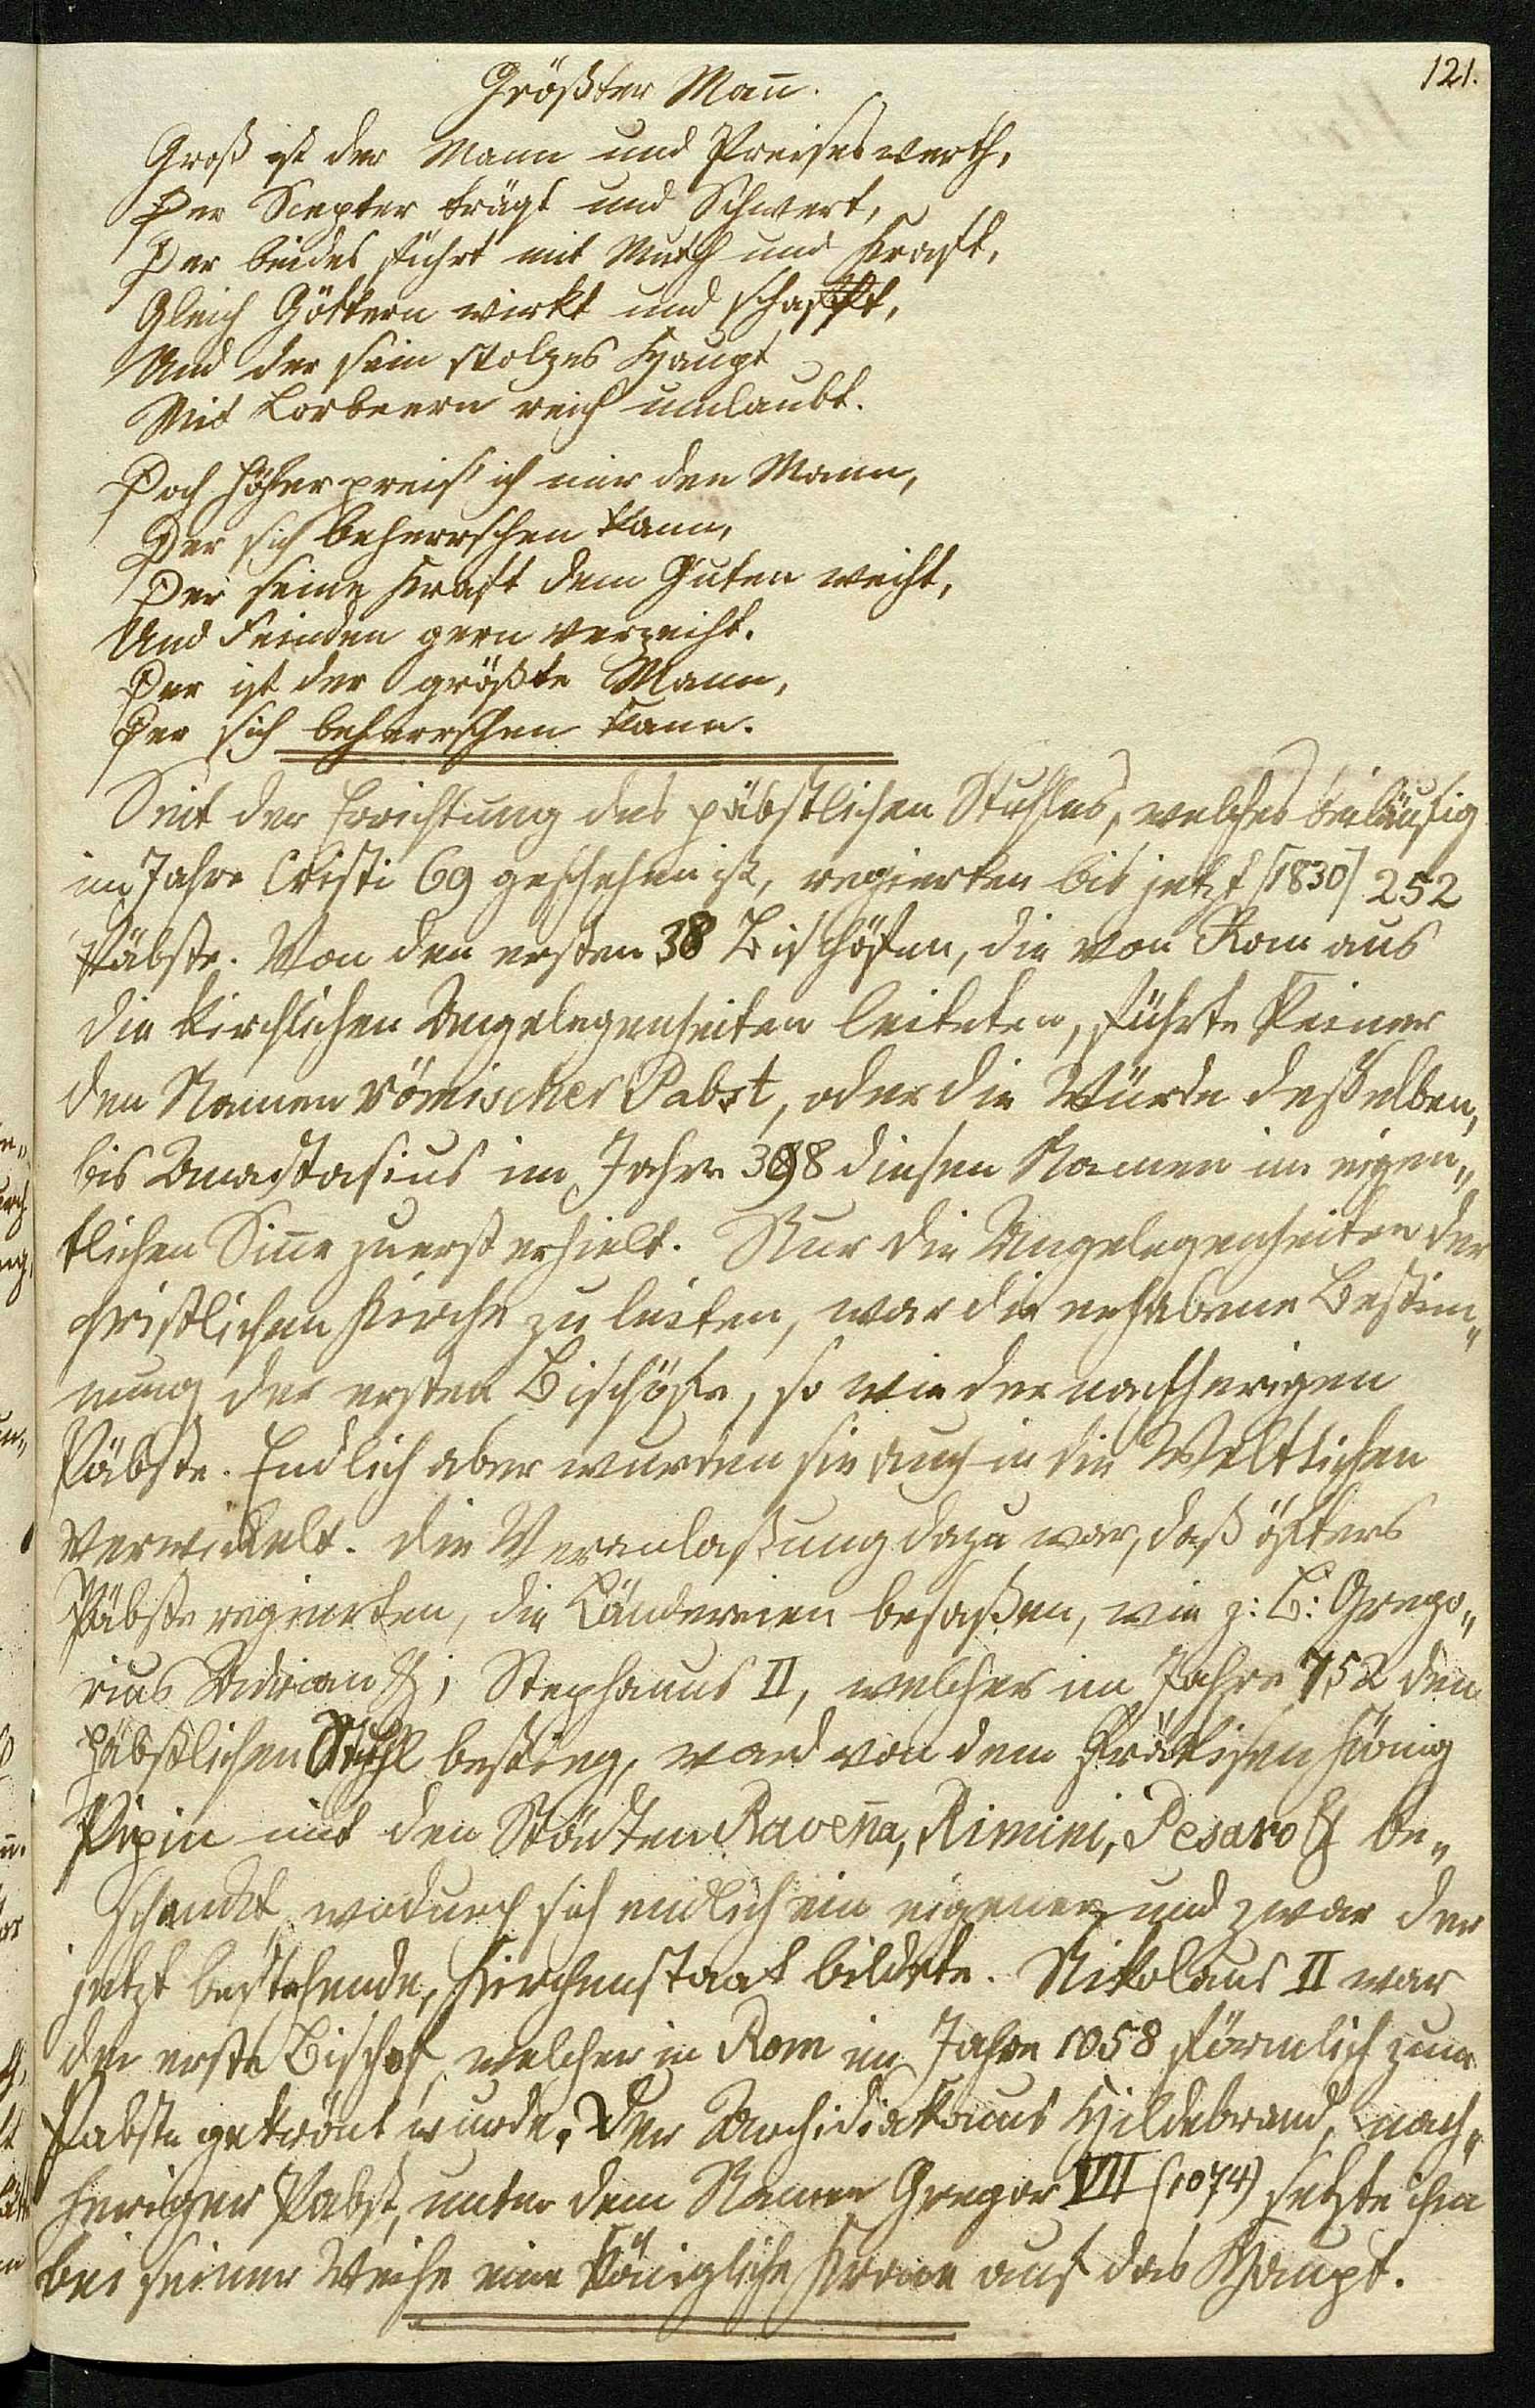 121.
Größter Mañ.
Groß ist der Mann und Preises werth,
Der Scepter trägt und Schwert,
Der beides führt mit Muth und Kraft,
Gleich Göttern wirkt und schafft,
Und der sein stolzes Haupt
Mit Lorbeern reich umlaubt.
Doch höher preis' ich mir den Mann,
Der sich beherrschen kann,
Der seine Kraft dem Guten weiht,
Und Feinden gern verzeiht.
Der ist der größte Mann,
Der sich beherrschen kann.
Seit der Errichtung des päbstlichen Stuhles, welches beiläufig
im Jahre Cristi 69 geschehen ist, regierten bis jetzt [1830] 252
Päbste. Von den ersten 38 Bischöfen, die von Rom aus
die kirchlichen Angelegenheiten leiteten, führte keiner
den Namen römischer Pabst, oder die Würde desselben,
bis Anastasius im Jahre 398 diesen Namen im eigen„
tlichen Siñe zuerst erhielt. Nur die Angelegenheiten der
christlichen Kirche zu leiten, war die erhabene Bestim„
mung der ersten Bischöfe, so wie der nachherigen
Päbste. Endlich aber wurden sie auch in die Weltlichen
verwickelt. Die Veranlaßung dazu war, daß öfters
Päbste regierten, die Ländereien besaßen, wie z: B: Grego„
rius Adrian &; Stephanus II, welcher im Jahre 752 den
päbstlichen Stuhl bestieg, ward von dem Fräkischen König
Pipin mit den Städten Raveña, Rimini, Pesaro & be„
schenkt, wodurch sich endlich ein eigener und zwar der
jetzt bestehende, Kirchenstaat bildete. Nikolaus II war
der erste Bischof, welcher in Rom im Jahre 1058 förmlich zum
Pabste gekrönt wurde. Der Archidiakonus Hildebrand, nach„
heriger Pabst, unter dem Namen Gregor VII (1074) setzte ihm
bei seiner Weihe eine königliche Krone auf das Haupt.